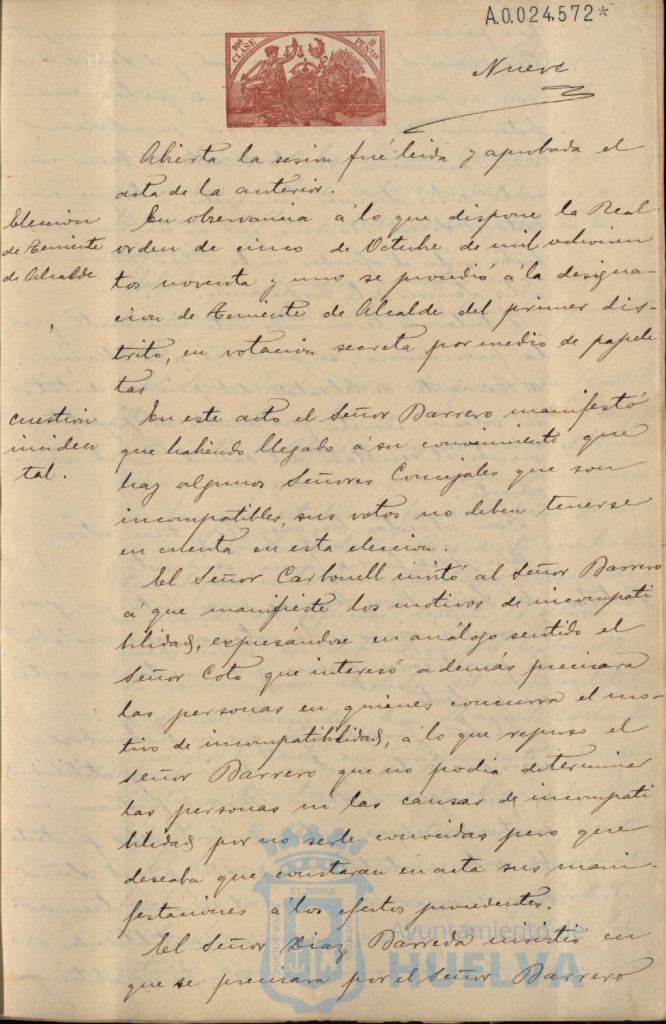 A.0.024,572*
10ª CLASE 2 PESTAS
Nueve
Abierta la sesion fué leida y aprobada el
acta de la anterior.
Elección
de Teniente
de Alcalde
En observancia á lo que dispone la Real
orden de cinco de Octubre de mil ochocien
tos noventa y uno se procedió á la designa-
cion de Teniente de Alcalde del primer dis-
trito, en votacion secreta por medio de papele
tas
cuestion
inciden
tal.
En este acto el Señor Barrero manifestó
que habiendo llegado á su conocimiento que
hay algunos Señores Concejales que son
incompatibles, sus votos no deben tenerse
en cuenta en esta eleccion.
El Señor Carbonell invitó al Señor Barrero
á que manifieste los motivos de incompati
bilidad, expresándose en análogo sentido el
Señor Coto que interesó además precisara
las personas en quienes concurra el mo-
tivo de incompatibilidad, á lo que repuso el
Señor Barrero que no podia determinar
las personas ni las causas de incompati
bilidad por no serle conocidas pero que
deseaba que constaran en acta sus mani-
festaciones á los efectos procedentes.
El Señor Diaz Barreda insistió en
que se precisara por el Señor Barrero
PORTUS MARIS ET TERRAE CUSTODIA
Ayuntamiento de
HUELVA